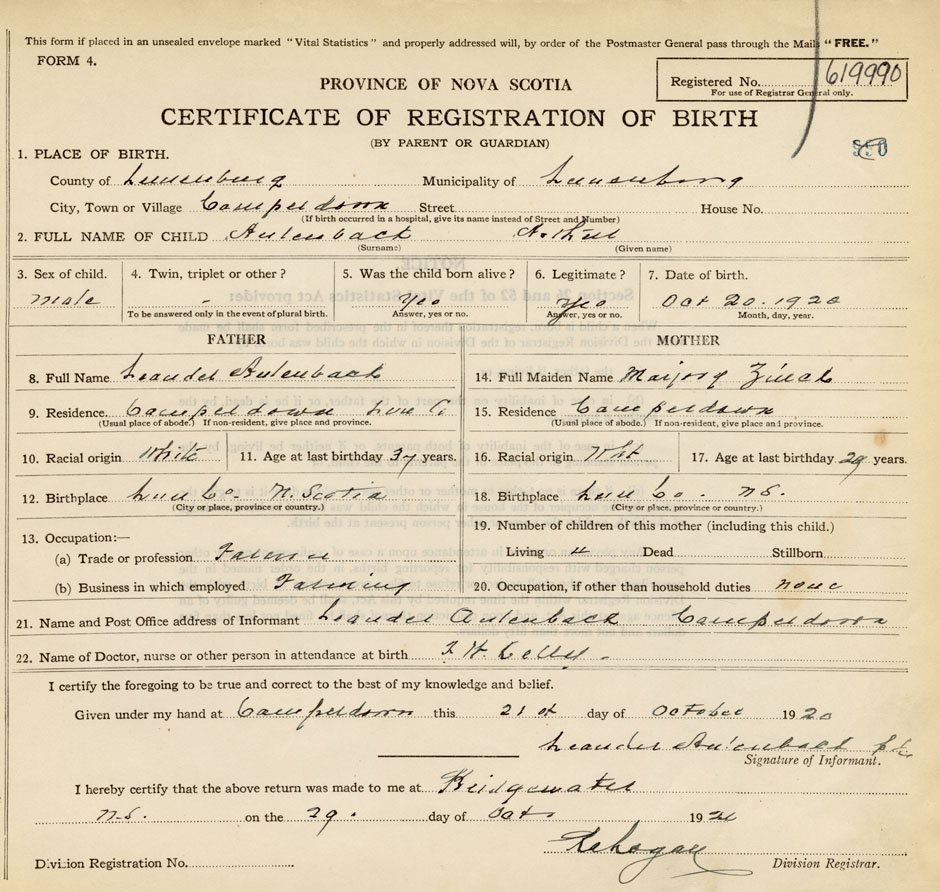 This form if placed in an unsealed envelope marked "Vital Statistics" and properly addressed will, by order of the Postmaster General pass through the Mails "FREE."
FORM 4.
PROVINCE OF NOVA SCOTIA
Registered No. 619990
For use of Registrar General only.
CERTIFICATE OF REGISTRATION OF BIRTH
(BY PARENT OR GUARDIAN)
1. PLACE OF BIRTH.
County of Lunenburg Municipality of Lunenburg
City, Town or Village Camperdown Street House No.
(If birth occurred in a hospital, give its name instead of Street and Number)
2. FULL NAME OF CHILD Aulenback Arthur
(Surname) (Given name)
3. Sex of child. 4. Twin, triplet or other? 5. Was the child born alive? 6. Legitimate? 7. Date of birth.
male - Yes yes Oct 20. 1920
To be answered only in the event of plural birth. Answer, yes or no. Answer, yes or no. Month, day, year.
FATHER MOTHER
8. Full Name Leander Aulenback 14. Full Maiden Name Marjory Zinck
9. Residence Camperdown Lun C. 15. Residence Camperdown
(Usual place of abode.) If non-resident, give place and province. (Usual place of abode.) If non-resident, give place and province.
10. Racial origin White 11. Age at last birthday 37 years. 16. Racial origin Wht 17. Age at last birthday 29 years.
12. Birthplace Lun Co. N. Scotia 18. Birthplace Lun Co. N.S.
(City or place, province or country.) (City or place, province or country.)
13. Occupation:— 19. Number of children of this mother (including this child.)
(a) Trade or profession Farmer Living 4 Dead Stillborn
(b) Business in which employed Farming 20. Occupation, if other than household duties none
21. Name and Post Office address of Informant Leander Aulenback Camperdown
22. Name of Doctor, nurse or other person in attendance at birth
I certify the foregoing to be true and correct to the best of my knowledge and belief.
Given under my hand at Camperdown this 21 st day of October 1920
Leander Aulenback
Signature of Informant.
I hereby certify that the above return was made to me at Bridgewater
N.S. on the 29. day of Oct. 19
Division Registration No. Division Registrar.